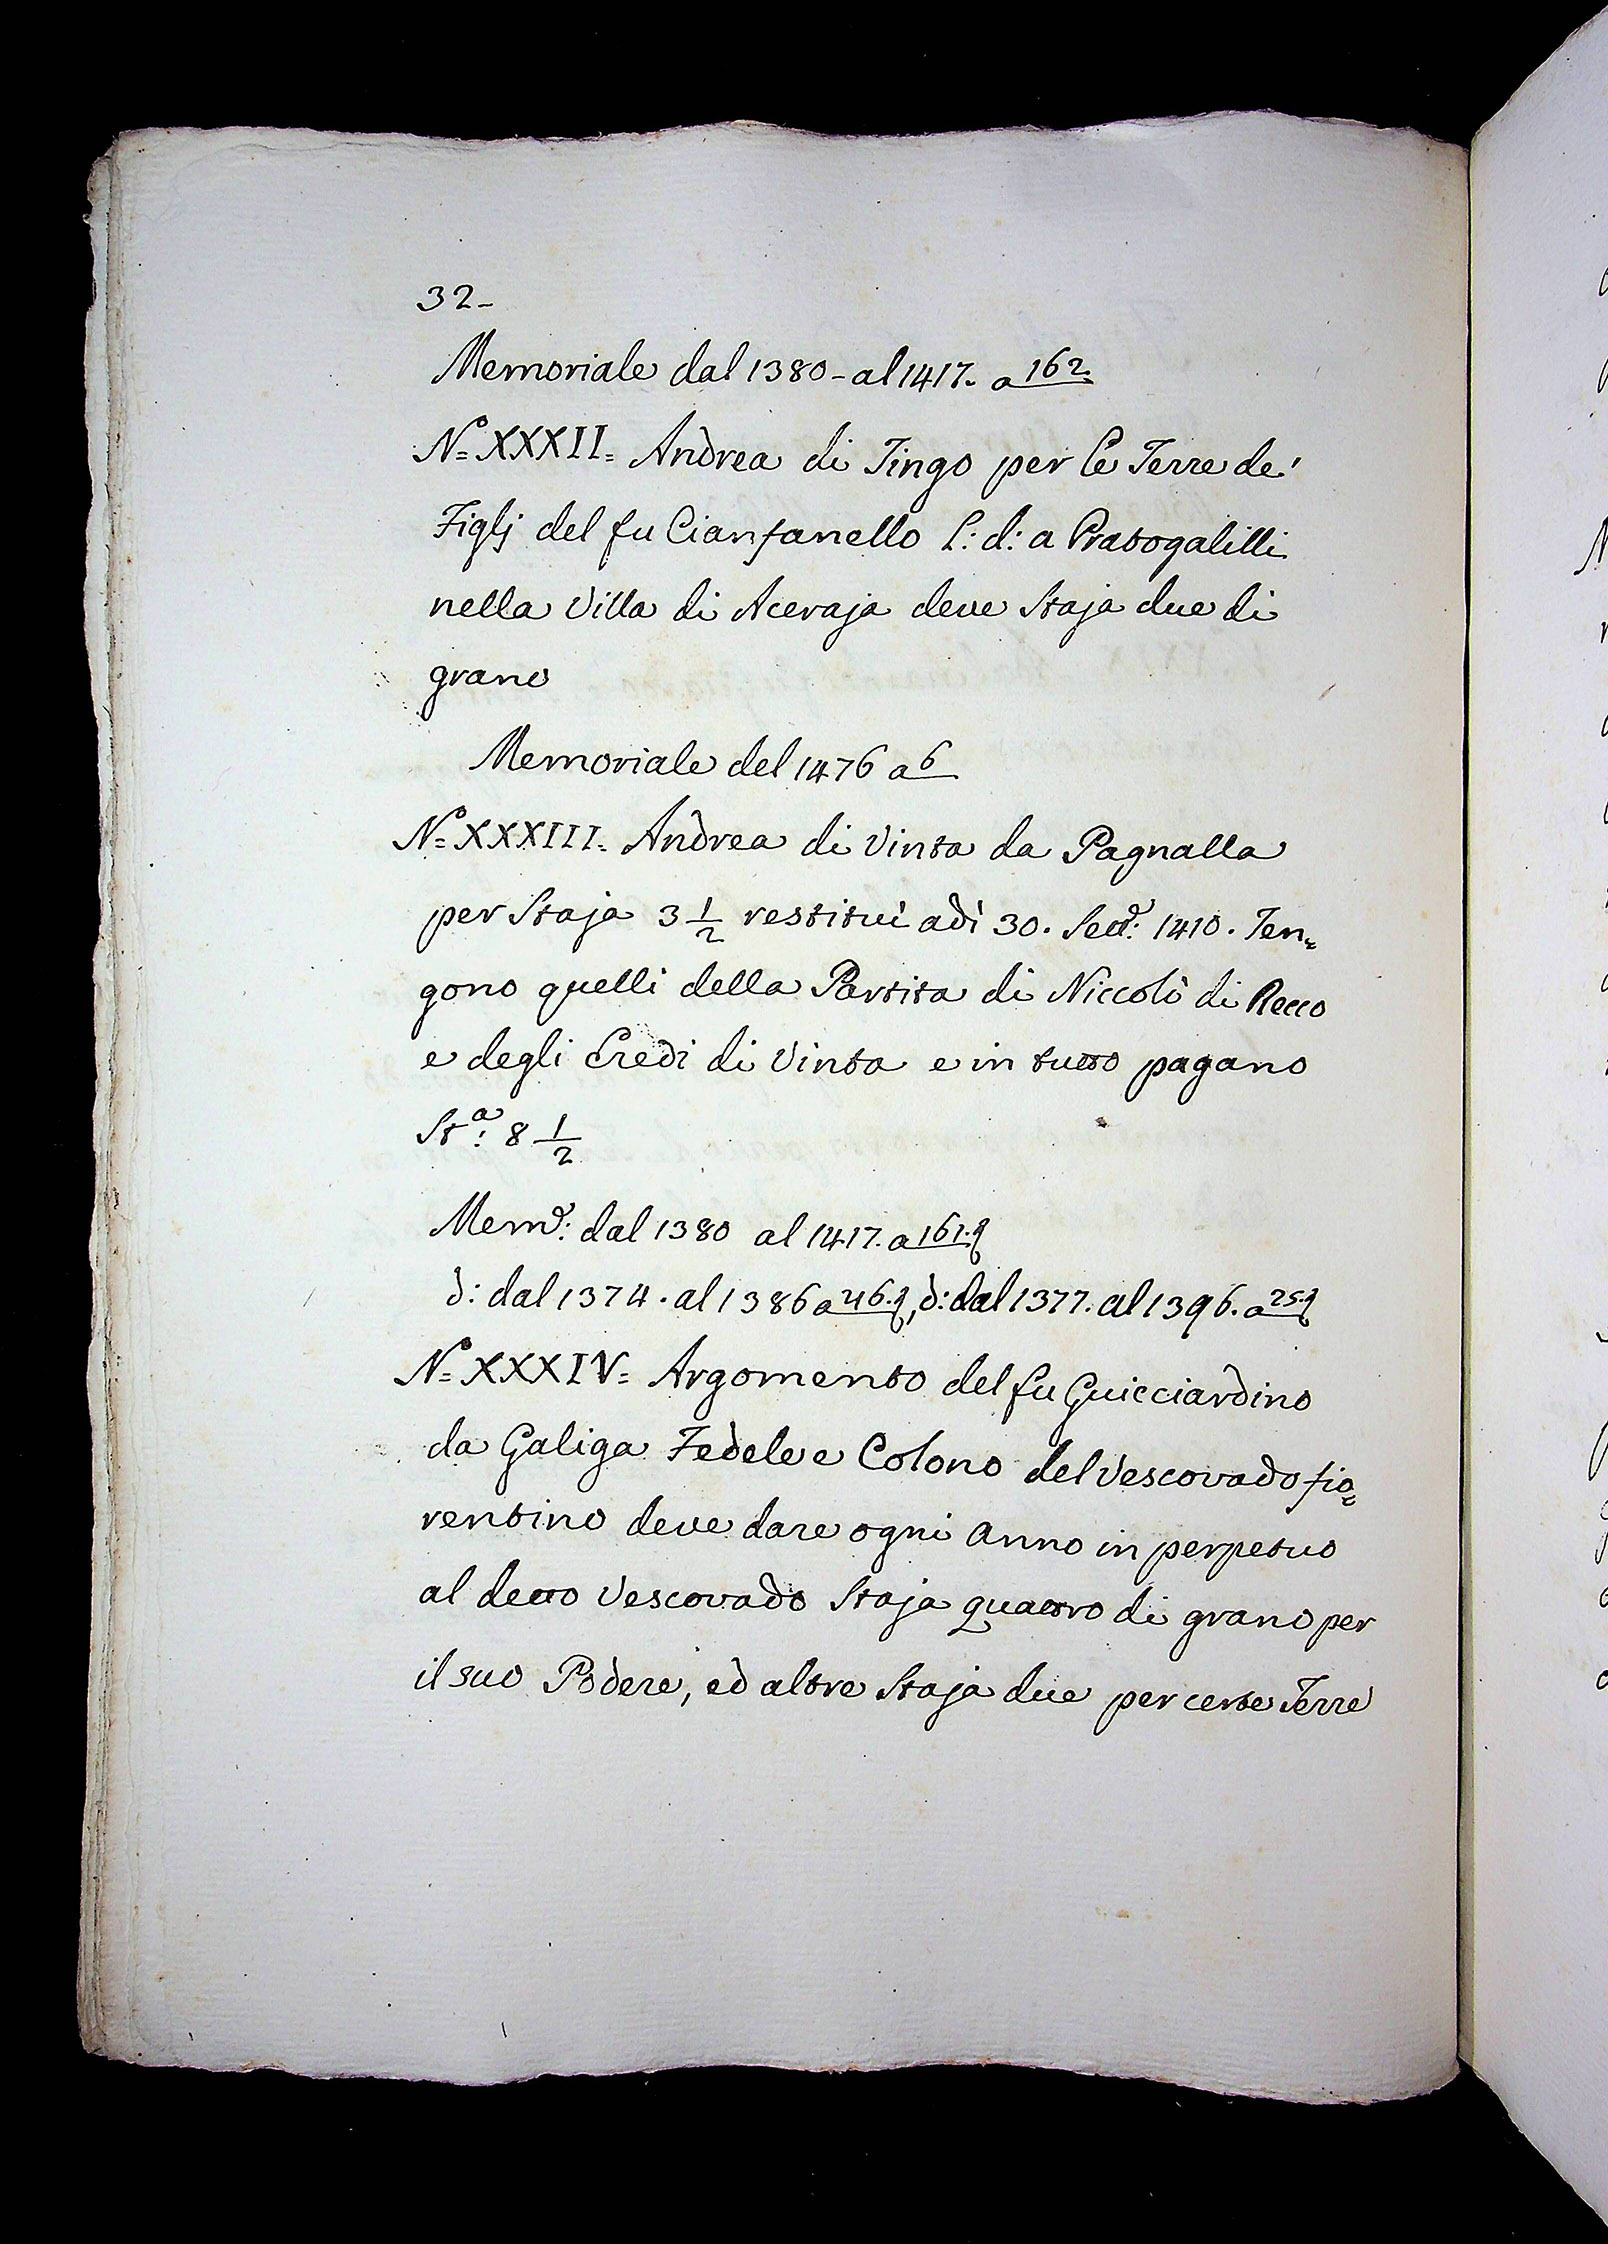 32-
Memoriale dal 1380- al 1417. a 162
N.º XXXII= Andrea di Tingo per le Terre de'
Figlj del fu Cianfanello l: d: a Pratogalilli
nella Villa di Aceraja deve Staja due di
grano
Memoriale del 1476 a 6
N.º XXXIII= Andrea di Vinta da Pagnalla
per Staja 3 1/2 restitui adì 30. 1410. Ten=
gono quelli della Partita di Niccolò di Recco
e degli Eredi di Vinta e in tutto pagano
St.ª: 8 1/2
Mem.e: dal 1380 al 1417. a 161.
d: dal 1374. al 1386 a 46., d: dal 1377. al 1396. a 25.
N.º XXXIV= Argomento del fu Guicciardino
da Galiga Fedele e Colono del Vescovado fio=
rentino deve dare ogni anno in perpetuo
al detto Vescovado Staja quattro di grano per
il suo Podere, ed altre Staja due per certe Terre